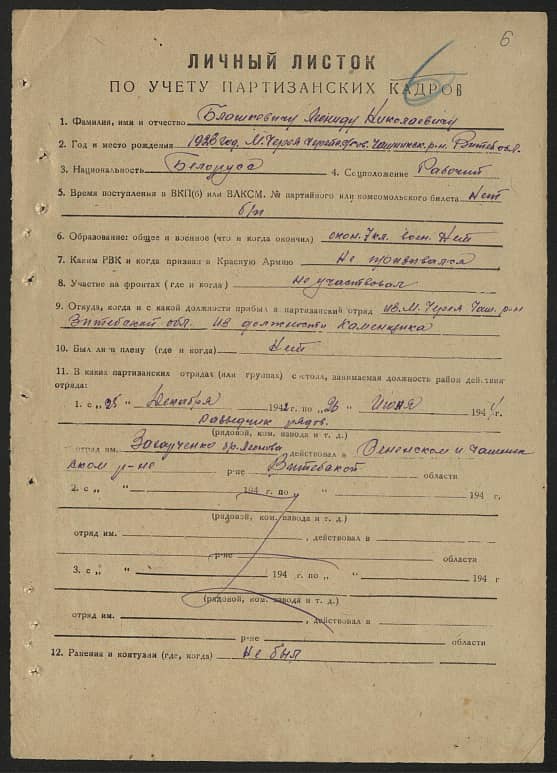 6
ЛИЧНЫЙ ЛИСТОК
ПО УЧЕТУ ПАРТИЗАНСКИХ КАДРОВ
6
1. Фамилия, имя и отчество Николаевичу
2. Год и место рождения 1926 год, М. Черея Чашникск. р-н. Витеб обл.
3. Национальность Белоруса 4. Соцположение Рабочий
5. Время поступления в ВКП(б) или ВЛКСМ. № партийного или комсомольского билета Нет
б/п
6. Образование: общее и военное (что и когда окончил) окон. 7 кл. воен. Нет
7. Каким РВК и когда призван в Красную Армию Не призывался
8. Участие на фронтах (где и когда) не участвовал
9. Откуда, когда и с какой должности прибыл в партизанский отряд из М. Черея Чаш. р-н
Витебской обл. из должности каменщика
10. Был ли в плену (где и когда) Нет
11. В каких партизанских отрядах (или группах) состоял, занимаемая должность район действия
отряда:
1. с „25" Декабря 1942 г. по „26" Июня 1944 г.
Разведчик рядов.
(рядовой, ком. взвода и т. д.)
отряд им. бр. Леонова действовал в Сененском и Чашник
ском р-не р-не Витебской области
2. с „ " 194 г. по „ " 194 г.
(рядовой, ком. взвода и т. д.)
отряд им. , действовал в
р-не области
3. с „ " 194 г. по „ " 194 г
(рядовой, ком. взвода и т. д.)
отряд им. , действовал в
р-не области
12. Ранения и контузии (где, когда) Не был